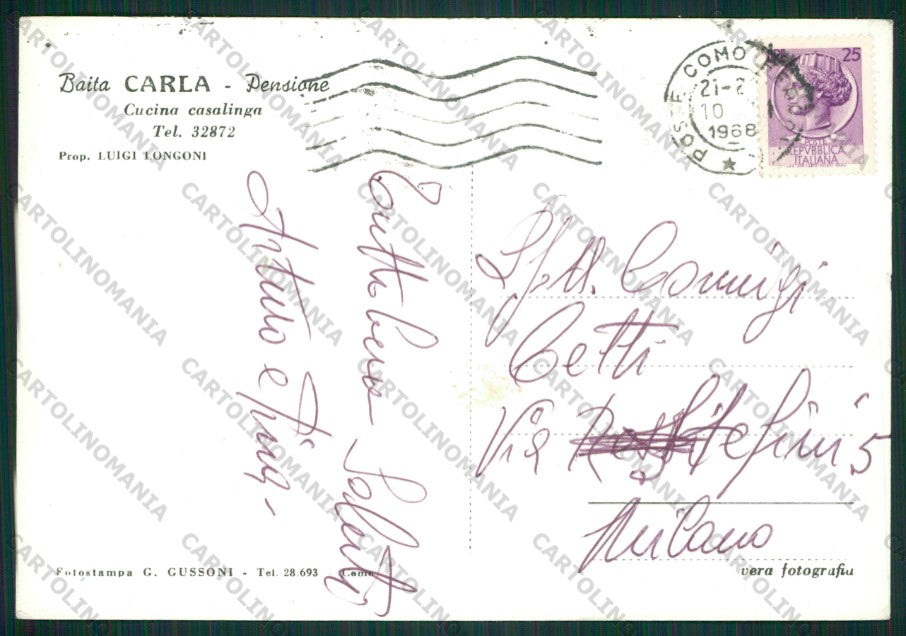 Baita CARLA - Pensione
Cucina casalinga
Tel. 32872
Prop. LUIGI LONGONI
POSTE COMO
21-2
10
1968
25
REPVBBLICA
ITALIANA
Saluti
Arturo e
Spett. Coniugi
Cetti
Via Stefini 5
Milano
Fotostampa G. GUSSONI - Tel. 28.693 Como
vera fotografia
CARTOLINOMANIA